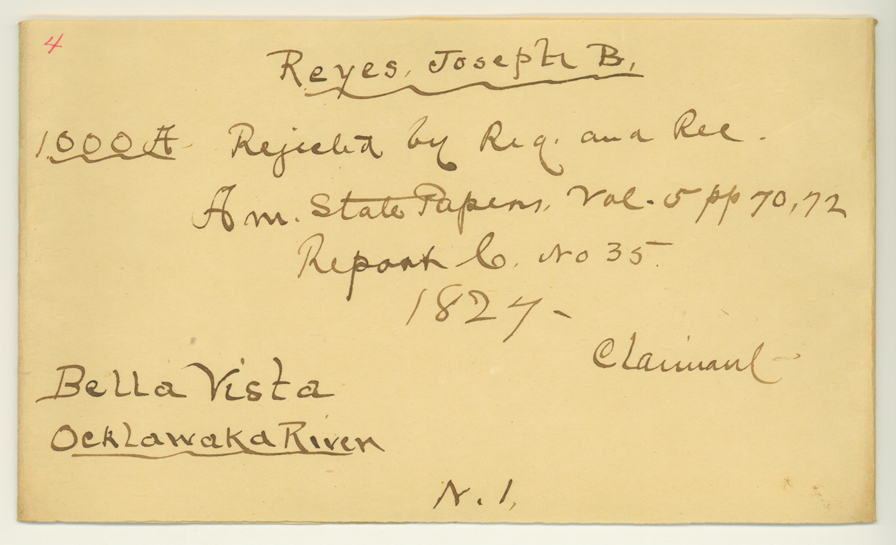 4
Reyes, Joseph B.
1000 A Rejected by Reg. and Rec.
Am. State Papers, Vol. 5 pp 70, 72
Report C. No 35
1827 -
Claimant
Bella Vista
Ocklawaka River
N. 1,